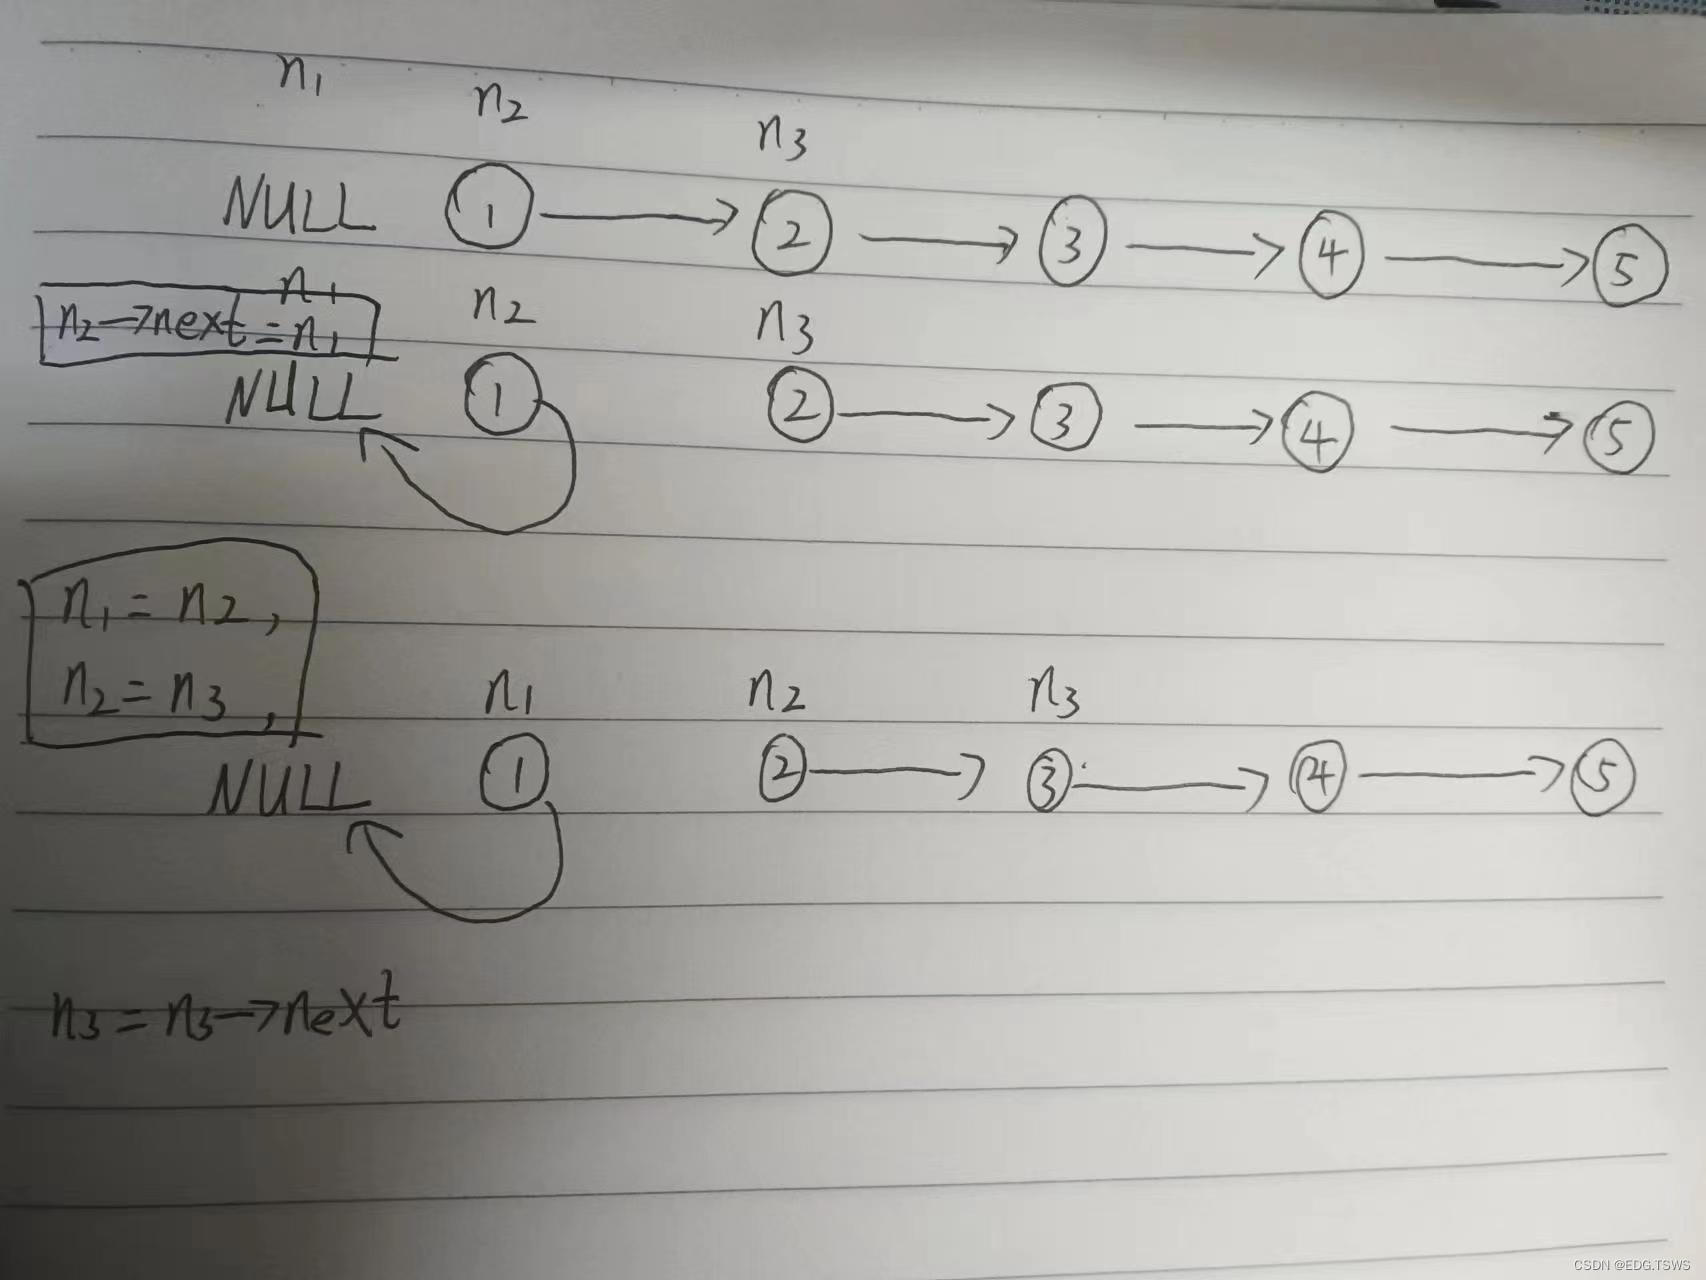 n1
n2
n3
NULL ① → ② → ③ → ④ → ⑤
n1 n2 n3
n2→next=n1
NULL ① ② → ③ → ④ → ⑤
n1 = n2,
n2 = n3,
n1 n2 n3
NULL ① ② → ③ → ④ → ⑤
n3 = n3→next
CSDN @EDG.TSWS